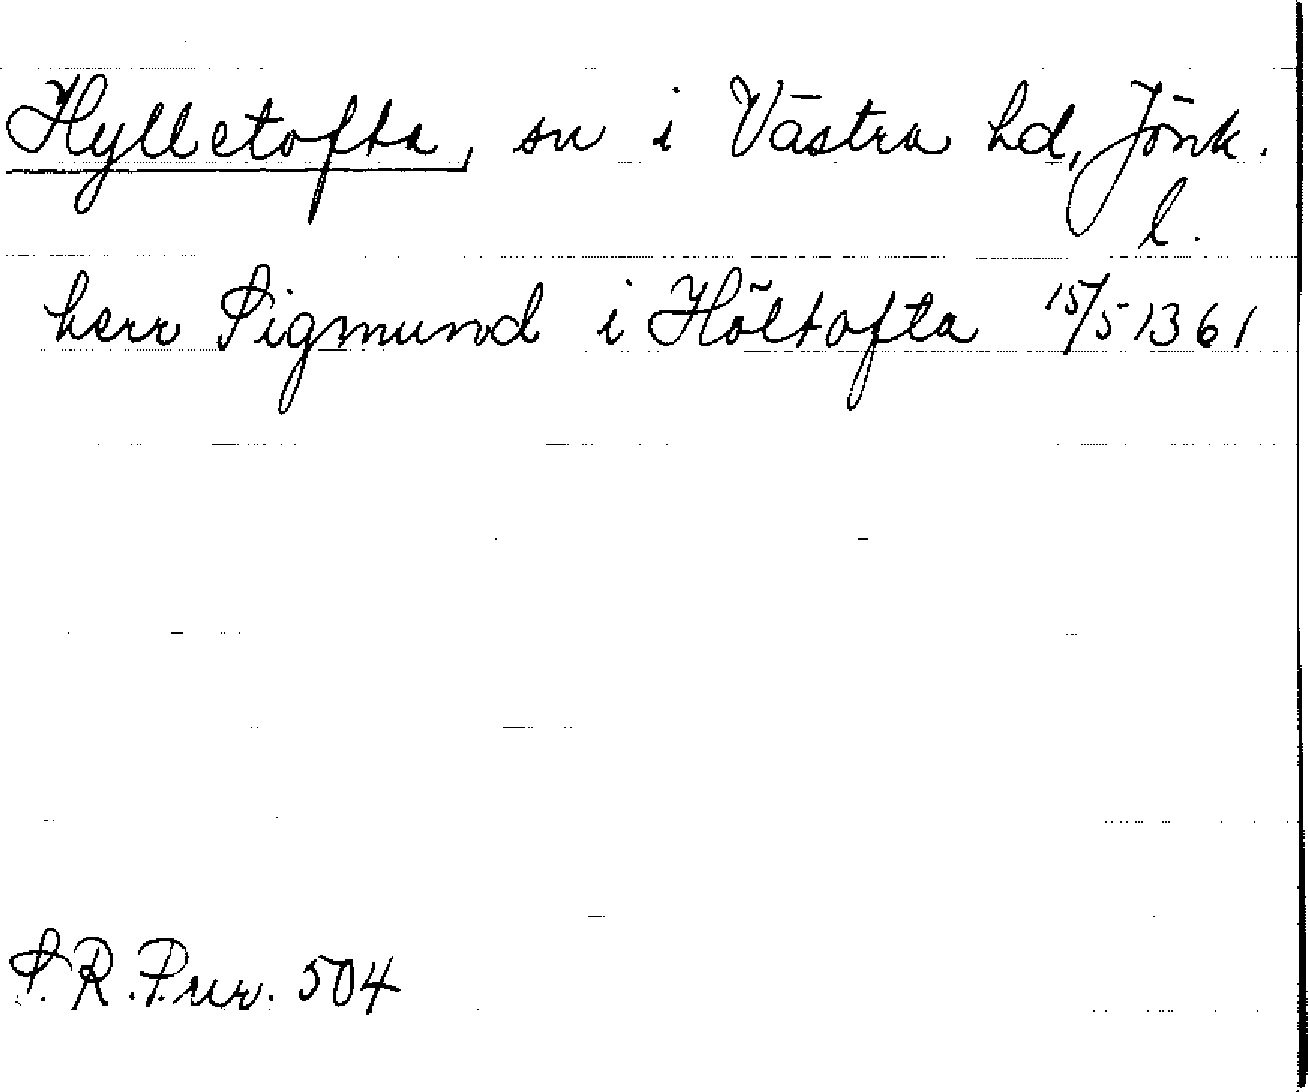 Hylletofta, sn i Västra hd, Jönk.
l.
herr Sigmund i Höltofta 15/5 1361
S.R.Prur. 504